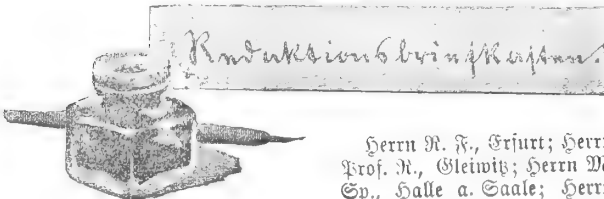 Redaktionsbriefkasten.
Herrn R. F., Erfurt; Herrn
Prof. R., Gleiwitz; Herrn M.
Sp., Halle a. Saale; Herrn